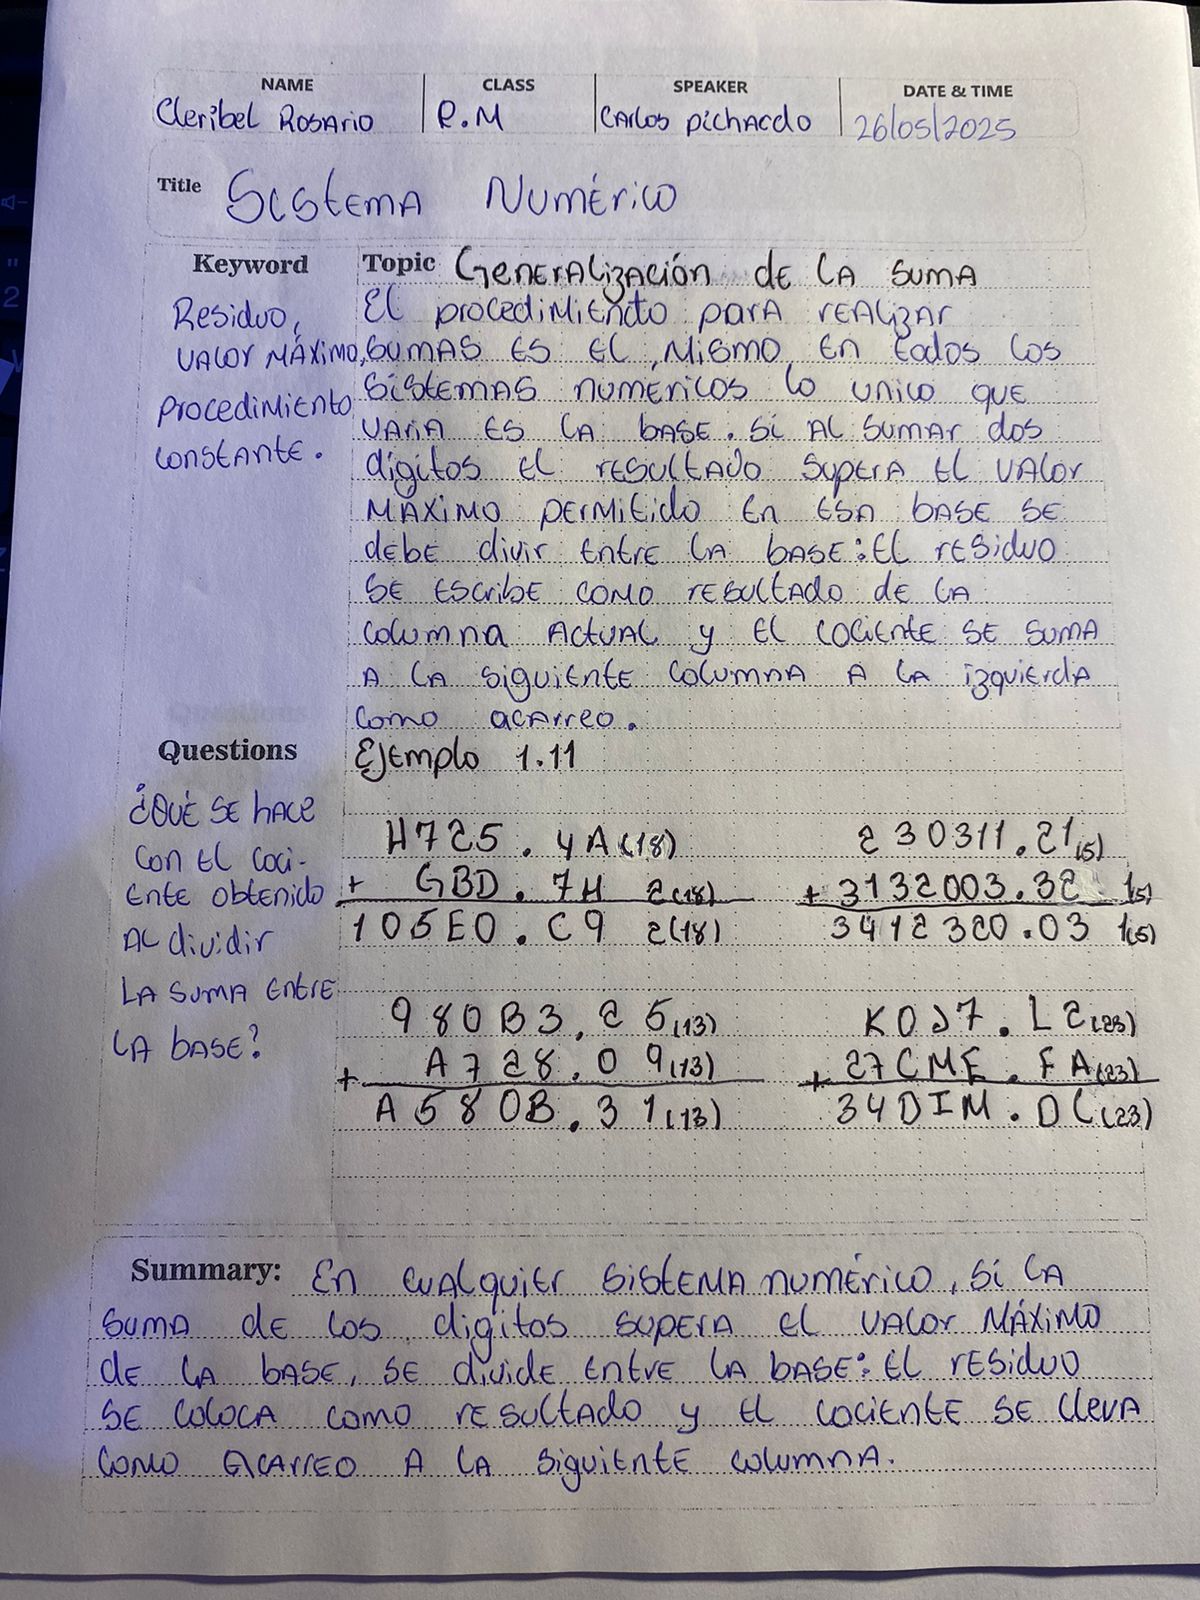 NAME CLASS SPEAKER DATE & TIME
Cleribel Rosario R.M Carlos Pichardo 26/05/2025
Title Sistema Numérico
Keyword
Residuo,
valor máximo,
procedimiento
constante.
Topic Generalización de la suma
El procedimiento para realizar
sumas es el mismo en todos los
sistemas numéricos lo unico que
varia es la base. Si al sumar dos
digitos el resultado supera el valor
máximo permitido en esa base se
debe divir entre la base: El residuo
se escribe como resultado de la
columna actual y el cociente se suma
a la siguiente columna a la izquierda
como acarreo.
Questions
¿Qué se hace
con el coci-
ente obtenido
al dividir
la suma entre
la base?
Ejemplo 1.11
H725.4A(18)
+ GBD.7H 2(18)
105E0.C9 2(18)
230311.21(5)
+3132003.32 1(5)
3412320.03 1(5)
980B3.25(13)
+ A728.09(13)
A580B.31(13)
K0J7.L2(23)
+27CME.FA(23)
34DIM.DC(23)
Summary: En cualquier sistema numérico, si la
suma de los digitos supera el valor máximo
de la base, se divide entre la base: El residuo
se coloca como resultado y el cociente se lleva
como acarreo a la siguiente columna.